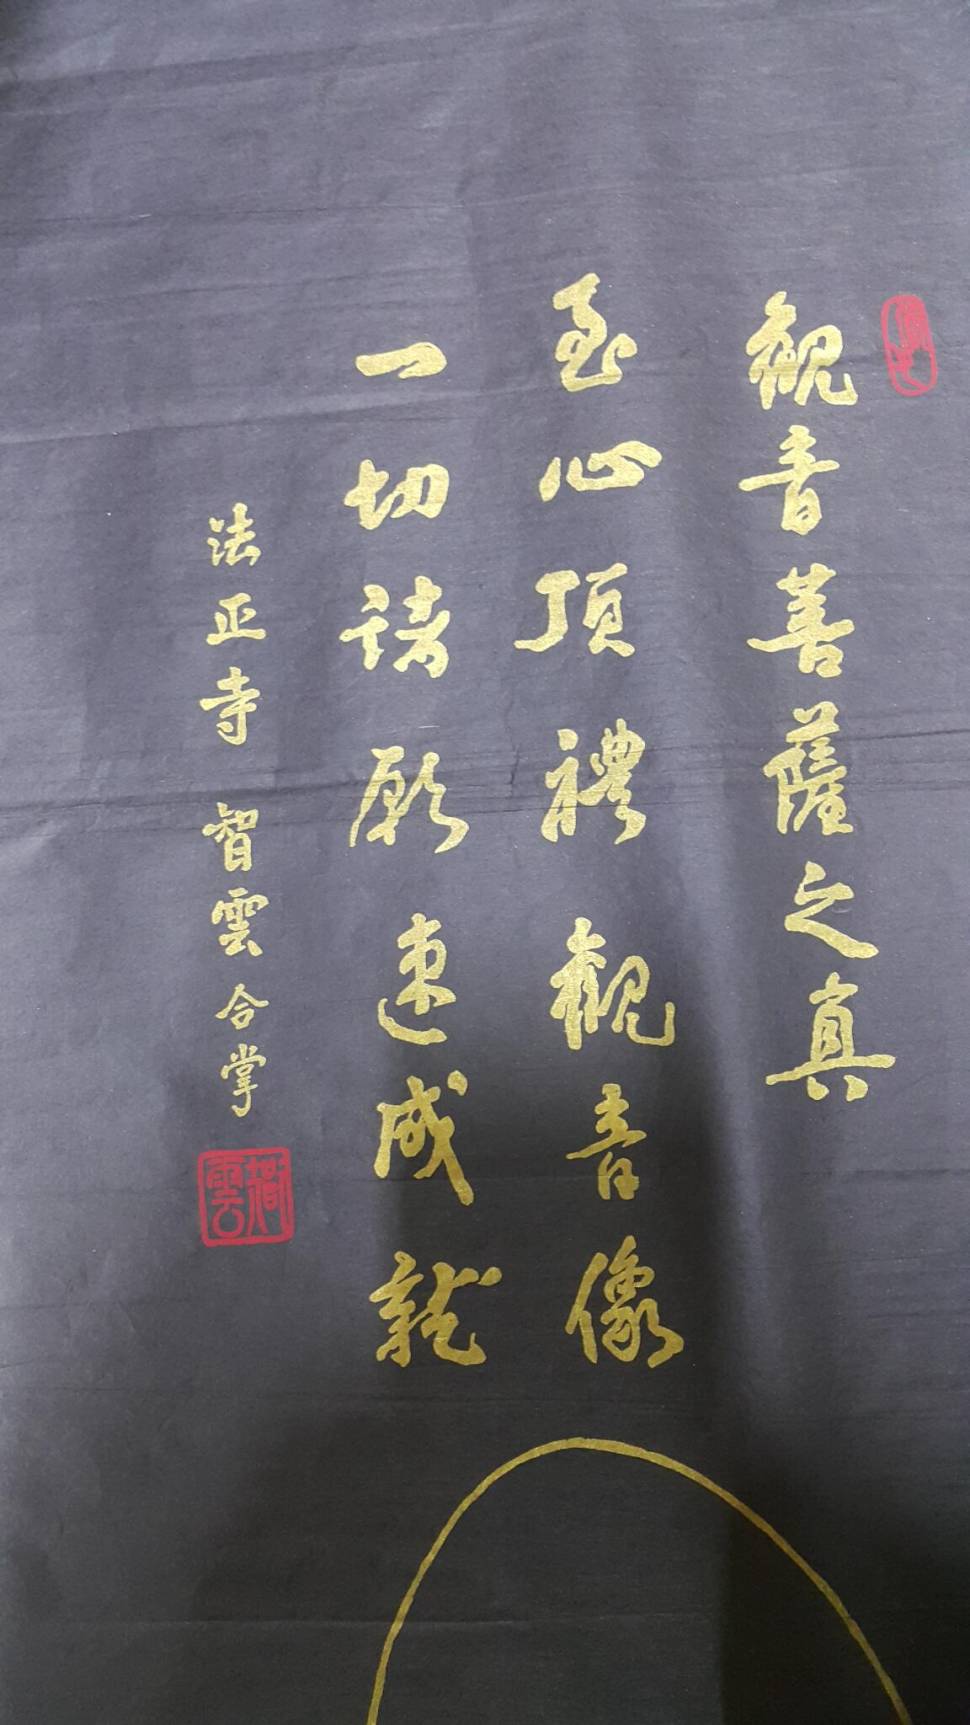 觀音菩薩之真
至心頂禮觀音像
一切諸願速成就
法正寺 智雲 合掌